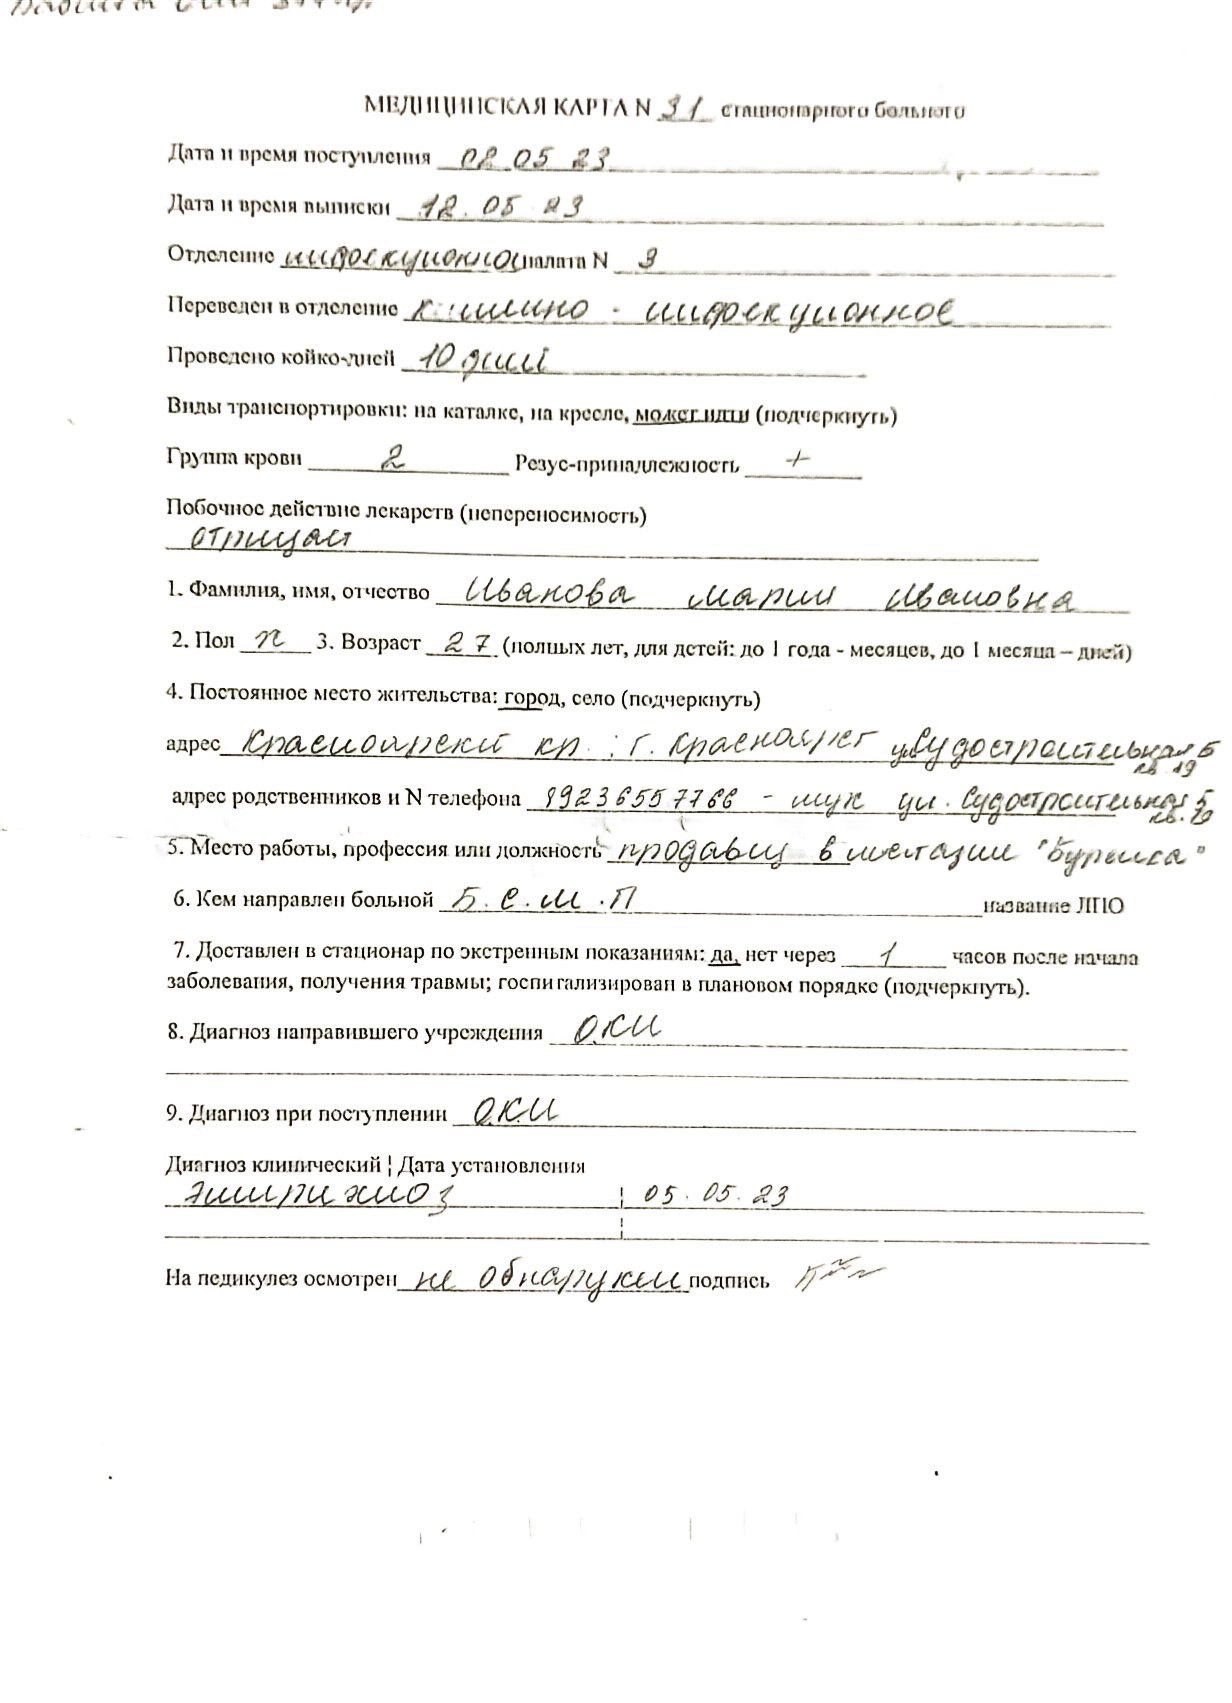 МЕДИЦИНСКАЯ КАРТА N 31 стационарного больного
Дата и время поступления 02 05 23
Дата и время выписки 12. 05 23
Отделение инфекционное палата N 3
Переведен в отделение кишечно - инфекционное
Проведено койко-дней 10 дней
Виды транспортировки: на каталке, на кресле, может идти (подчеркнуть)
Группа крови 2 Резус-принадлежность +
Побочное действие лекарств (непереносимость)
отрицает
1. Фамилия, имя, отчество Иванова Мария Ивановна
2. Пол 3. Возраст 27 (полных лет, для детей: до 1 года - месяцев, до 1 месяца – дней)
4. Постоянное место жительства: город, село (подчеркнуть)
адрес Красноярский кр. г. Красноярск ул Судостроительная 5
кв 19
адрес родственников и N телефона 89236557766 - муж ул. Судостроительная 5
кв. 19
5. Место работы, профессия или должность продавец в магазин
6. Кем направлен больной Б.С.М.П название ЛПО
7. Доставлен в стационар по экстренным показаниям: да, нет через 1 часов после начала
заболевания, получения травмы; госпитализирован в плановом порядке (подчеркнуть).
8. Диагноз направившего учреждения О.К.И
9. Диагноз при поступлении О.К.И
Диагноз клинический ¦ Дата установления
Эшерихиоз ¦ 05. 05. 23
На педикулез осмотрен не обнаружен подпись